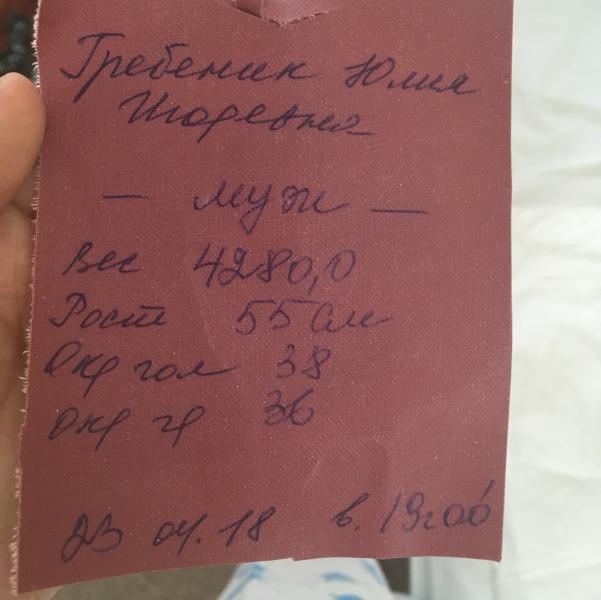 Гребеник Юлия
Игоревна
— муж —
Вес 4280,0
Рост 55 см
Окр гол 38
окр гр 36
23 04. 18 в. 19ч00